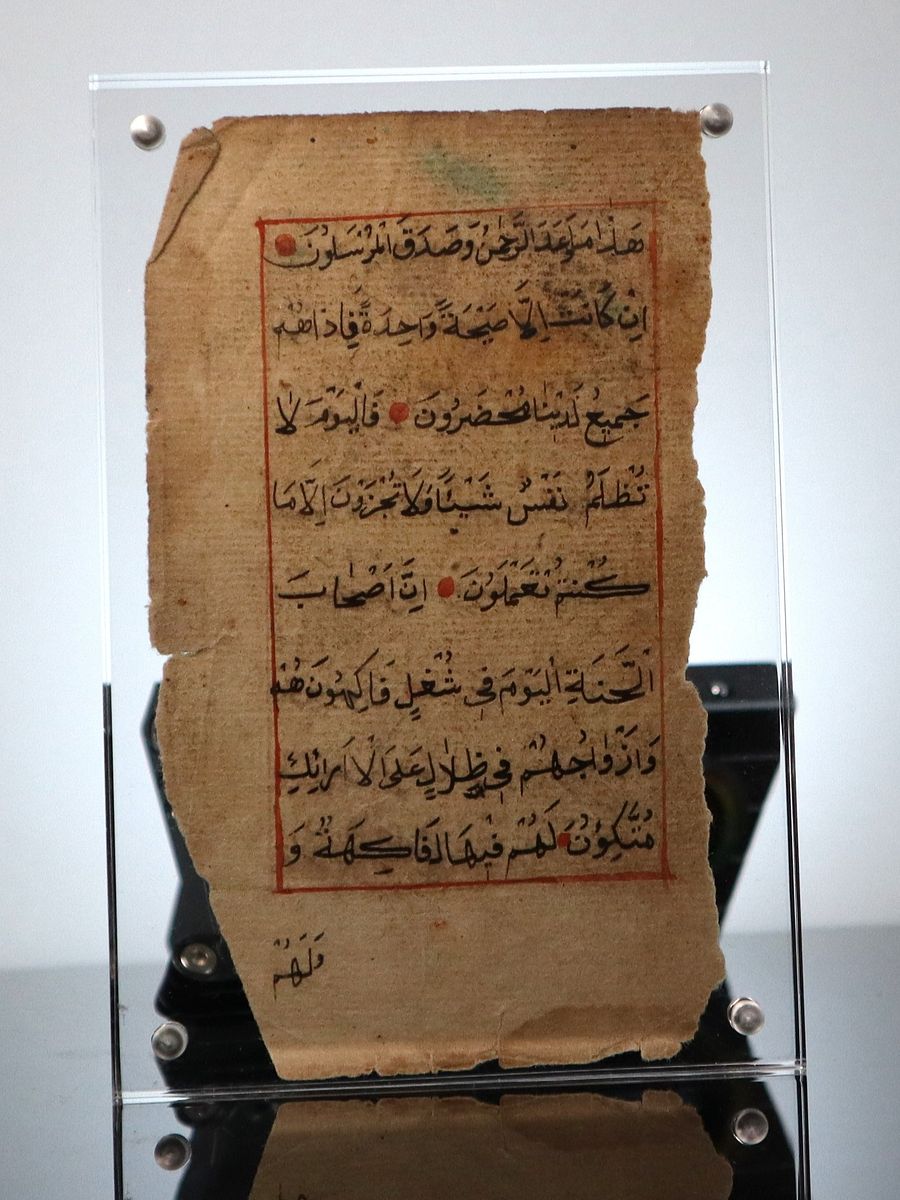 هَذَا مَا وَعَدَ الرَّحْمٰنُ وَصَدَقَ الْمُرْسَلُونَ
اِنْ كَانَتْ اِلَّا صَيْحَةً وَاحِدَةً فَاِذَا هُمْ
جَمِيعٌ لَدَيْنَا مُحْضَرُونَ فَالْيَوْمَ لَا
تُظْلَمُ نَفْسٌ شَيْئًا وَلَا تُجْزَوْنَ اِلَّا مَا
كُنْتُمْ تَعْمَلُونَ اِنَّ اَصْحَابَ
الْجَنَّةِ الْيَوْمَ فِى شُغْلٍ فَاكِهُونَ هُمْ
وَاَزْوَاجُهُمْ فِى ظِلَالٍ عَلَى الْاَرَائِكِ
مُتَّكِؤُنَ لَهُمْ فِيهَا فَاكِهَةٌ وَ
وَلَهُمْ